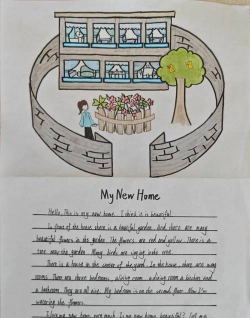 My New Home
Hello, This is my new home. I think it is beautiful.
In front of the house there is a beautiful garden. And there are many
beautiful flowers in the garden. The flowers are red and yellow. There is a
tree near the garden. Many birds are singing in the tree.
There is a house in the center of the yard. In the house, there are many
rooms. There are three bedrooms, a living room, a dining room, a kitchen and
a bathroom. They are all nice. My bedroom is on the second floor. Now I'm
watering the flowers.
I love my new home very much. Is my new home beautiful? Let me